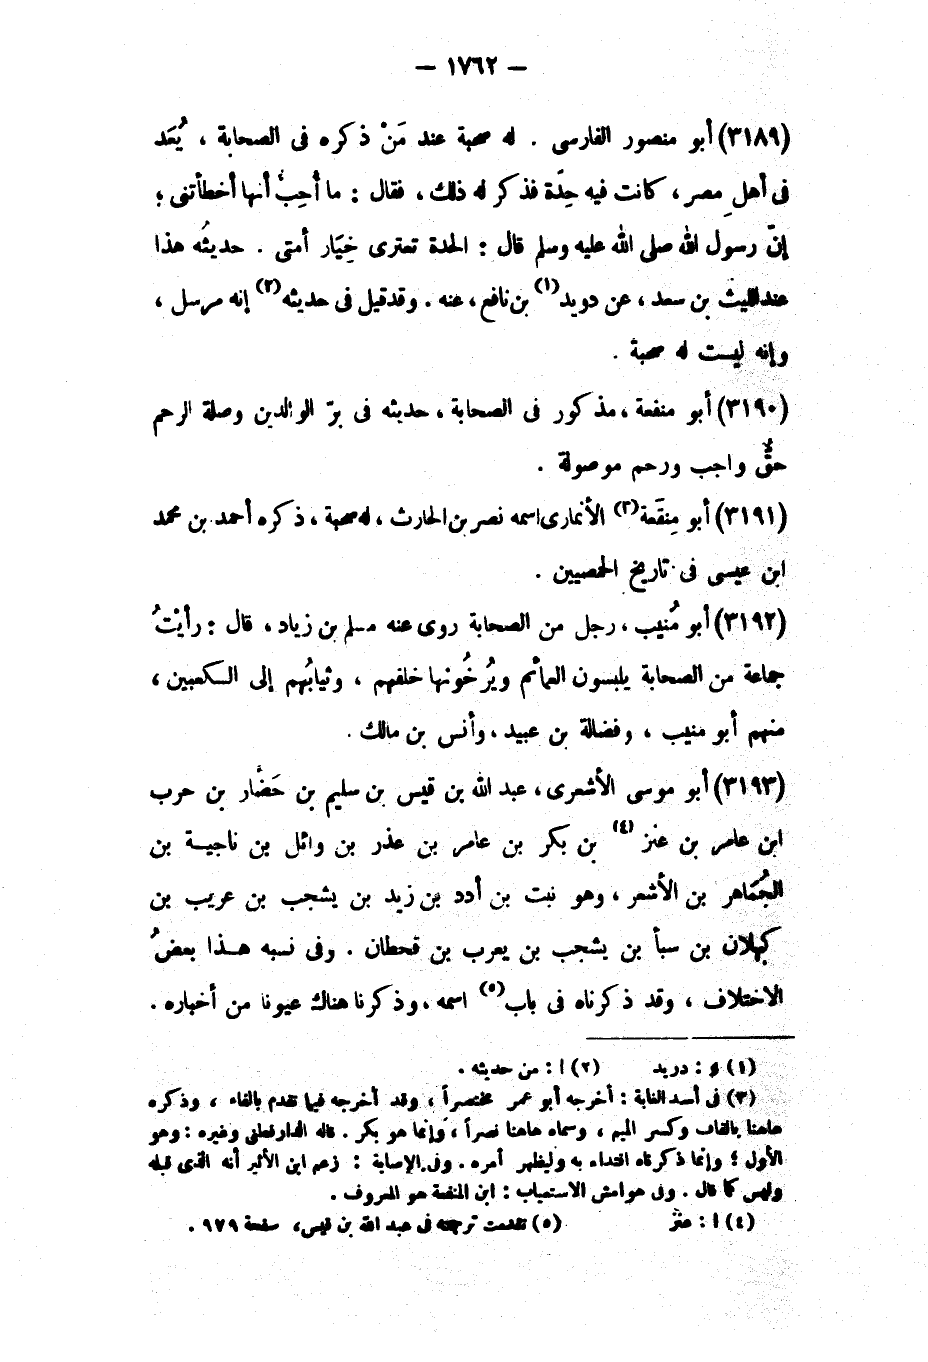 — ١٧٦٢ —
(٣١٨٩) أبو منصور الفارسى . له صحبة عند مَنْ ذكره فى الصحابة ، يُعَد
فى أهل مصر ، كانت فيه حِدّة فذكر له ذلك ، فقال : ما أُحِبُّ أنها أخطأتنى ؛
إنّ رسول الله صلى الله عليه وسلم قال : الحدة تعترى خِيَار أمتى . حديثُه هذا
عند الليث بن سعد ، عن دويد(١) بن نافع ، عنه . وقد قيل فى حديثه(٢) إنه مرسل ،
وإنه ليست له صحبة .
(٣١٩٠) أبو منفعة ، مذكور فى الصحابة ، حديثه فى برّ الوالدين وصلة الرحم
حقٌّ واجب ورحم موصولة .
(٣١٩١) أبو مِنقَعة(٣) الأنمارى اسمه نصر بن الحارث ، له صحبة ، ذكره أحمد بن محمد
ابن عيسى فى تاريخ الحمصيين .
(٣١٩٢) أبو مُنيب ، رجل من الصحابة روى عنه مسلم بن زياد ، قال : رأيْتُ
جماعة من الصحابة يلبسون العمائم ويُرخُونها خلفهم ، وثيابُهم إلى الكعبين ،
منهم أبو منيب ، وفضالة بن عبيد ، وأنس بن مالك .
(٣١٩٣) أبو موسى الأشعرى ، عبد الله بن قيس بن سليم بن حَضّار بن حرب
ابن عامر بن عنز (٤) بن بكر بن عامر بن عذر بن وائل بن ناجية بن
الجُمَاهر بن الأشعر ، وهو نبت بن أدد بن زيد بن يشجب بن عريب بن
كهلان بن سبأ بن يشجب بن يعرب بن قحطان . وفى نسبه هذا بعضُ
الاختلاف ، وقد ذكرناه فى باب(٥) اسمه ، وذكرنا هناك عيونا من أخباره .
(١) و : دريد (٢) ا : من حديثه .
(٣) فى أسد الغابة : أخرجه أبو عمر مختصراً ، وقد أخرجه فيما تقدم بالفاء ، وذكره
هاهنا بالقاف وكسر الميم ، وسماه هاهنا نصراً ، وإنما هو بكر . قاله الدارقطنى وغيره : وهو
الأول ؛ وإنما ذكرناه اقتداء به وليظهر أمره . وفى الإصابة : زعم ابن الأثير أنه الذى قبله
وليس كما قال . وفى هوامش الاستيعاب : ابن المنقعة هو المعروف .
(٤) ا : عتر (٥) تقدمت ترجمته فى عبد الله بن قيس، صفحة ٩٧٩ .